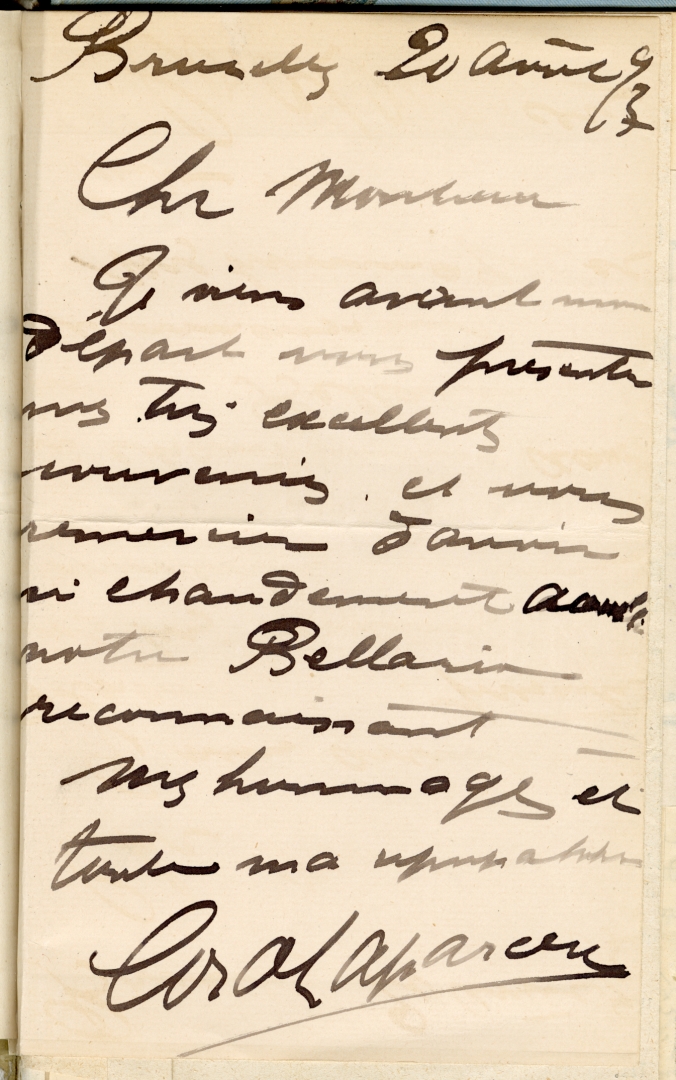 Bruxelles 20 avril 97
Cher Monsieur
Je viens avant mon
départ vous présenter
mes très excellents
souvenirs et vous
remercier d'avoir
si chaudement
notre Bellario
reconnaissant
Mes hommages et
toute ma sympathie
Cora Laparcerie